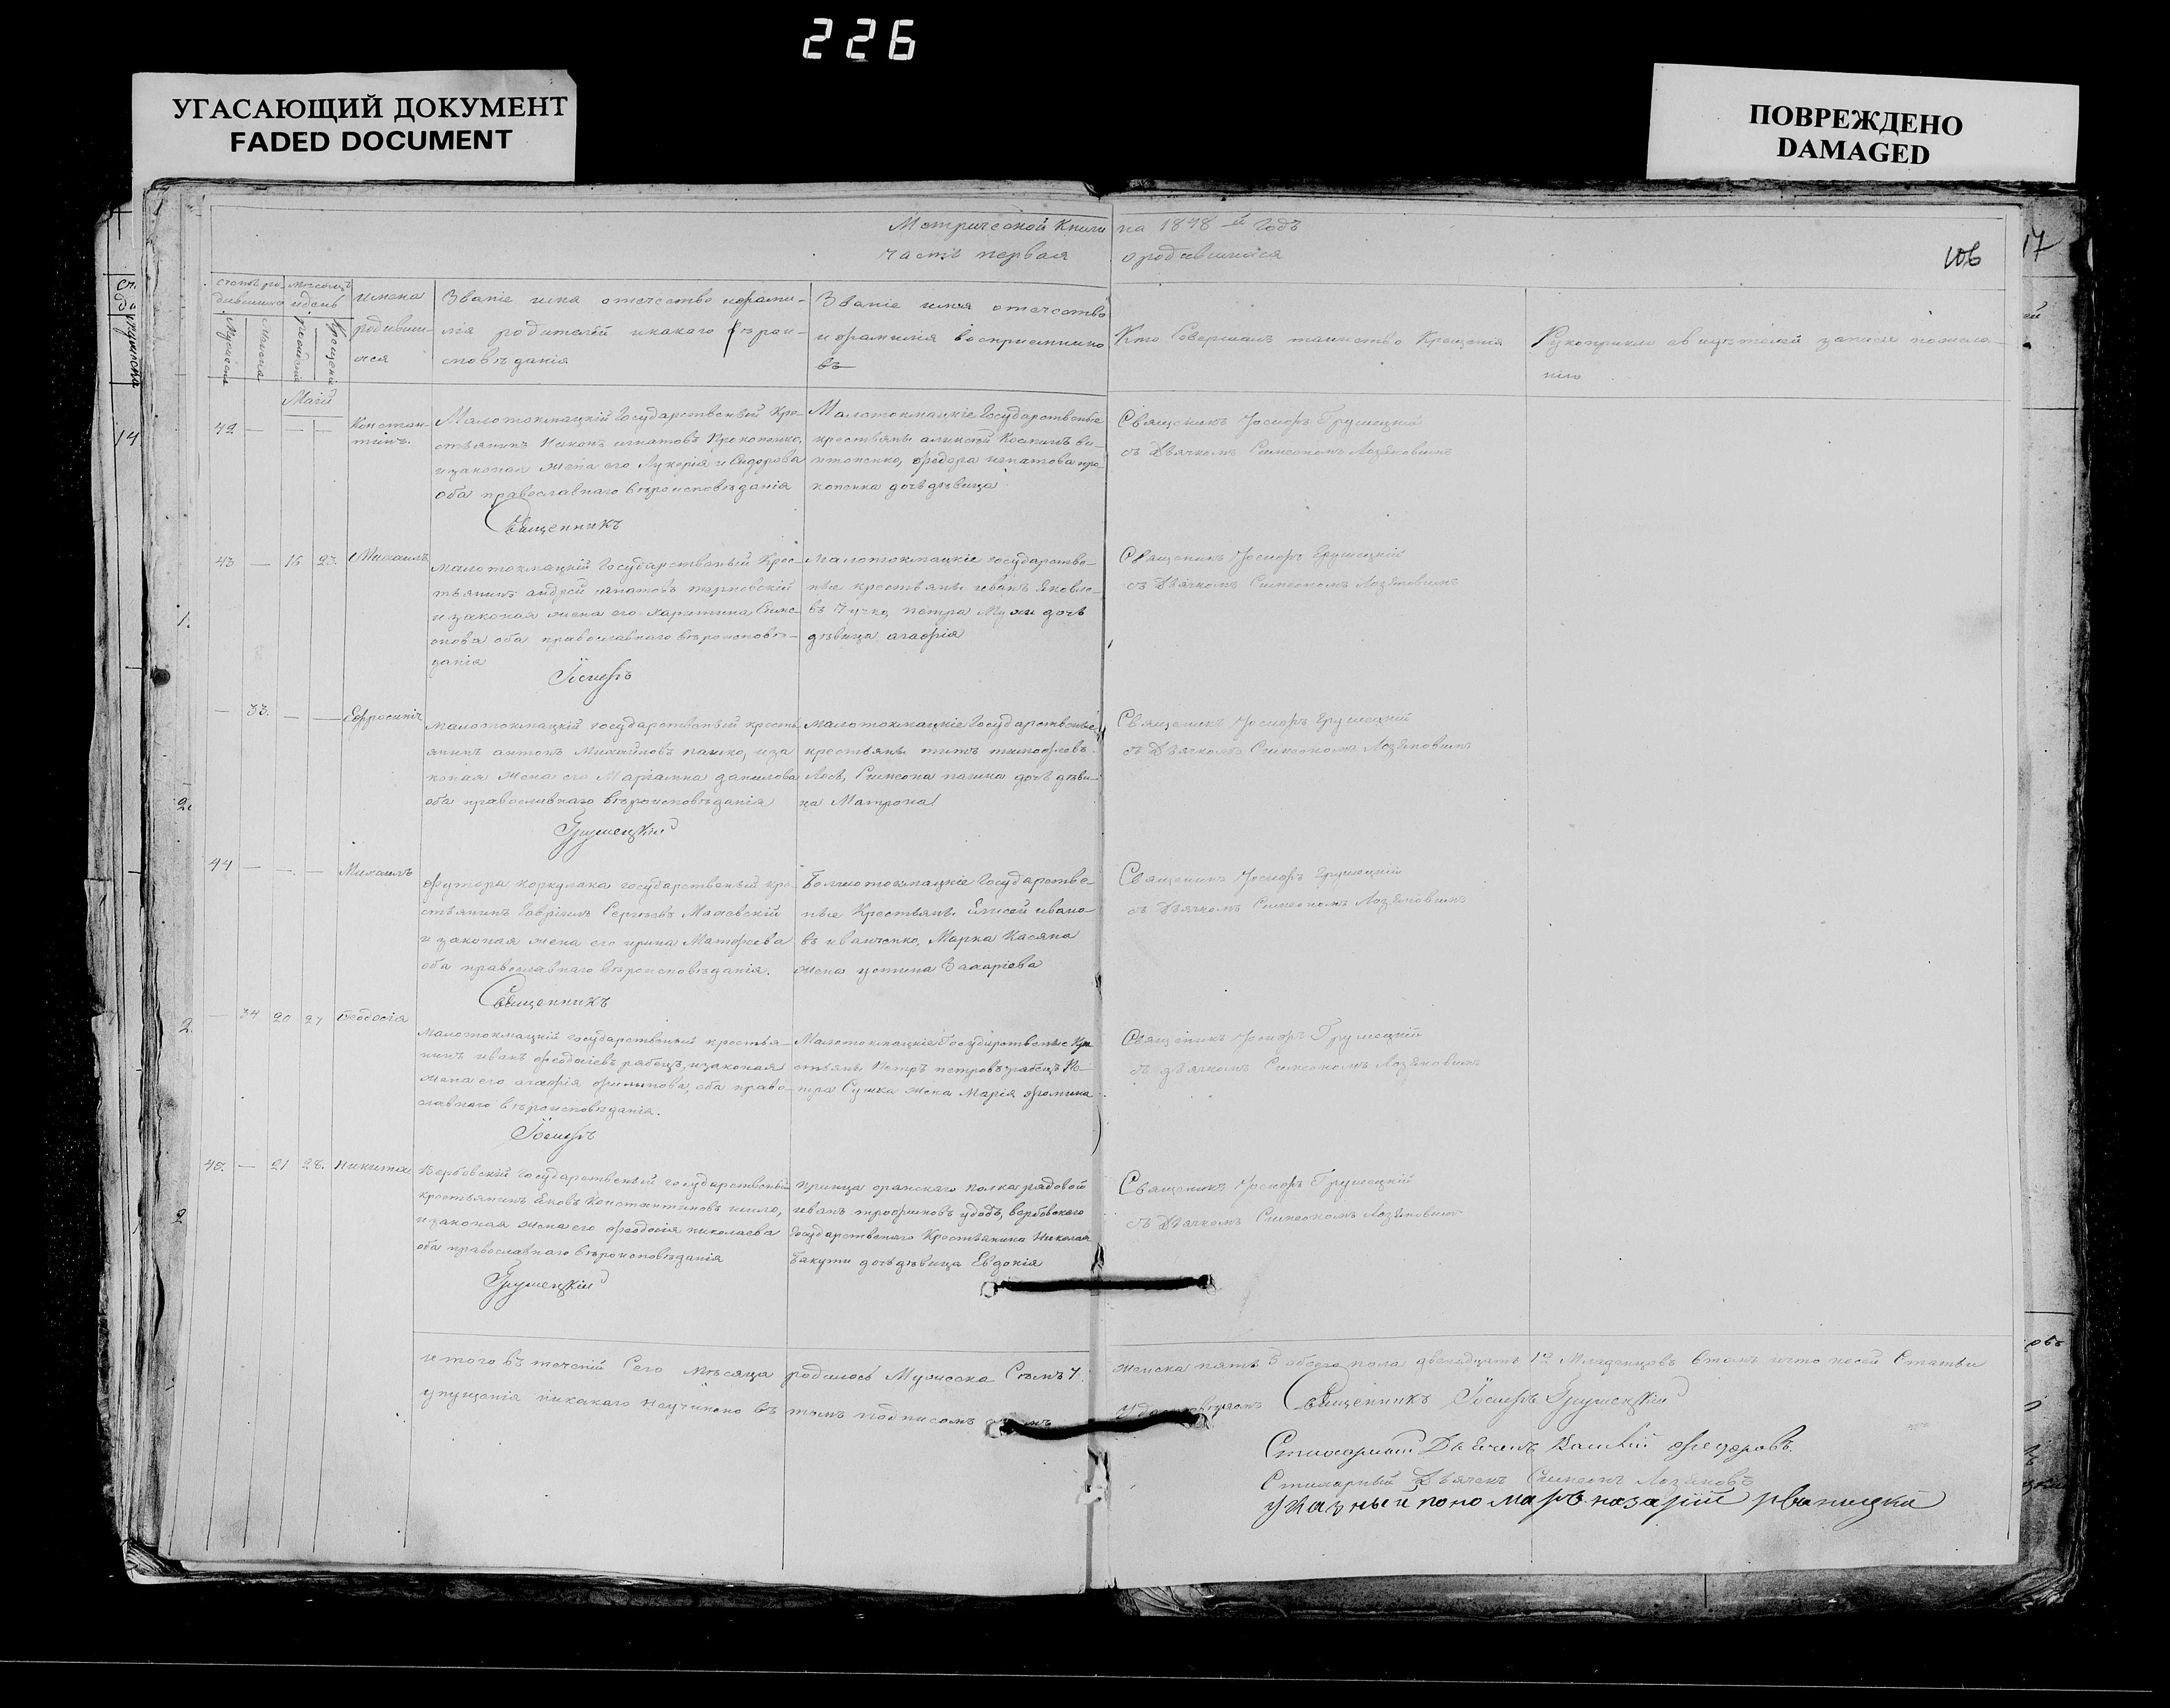 226
УГАСАЮЩИЙ ДОКУМЕНТ
FADED DOCUMENT
ПОВРЕЖДЕНО
DAMAGED
Метрической Книги на 1848-й Годъ
часть первая о родившихся
106
17
14
имена
родивши-
мся
Званіе имя отечество и фами-
лія родителей и какаго вѣрои-
сповѣданія
Званіе имя отечество
и фамилія воспріемнико
въ
Кто Совершалъ таинство Крещенія
Рукоприкла свидѣтелей записи пожела
нію
Маій
42 — — —
Констан-
тинъ.
Малотокмацкій Государственый Кре-
стьянинъ Никонъ игнатовъ Прокопенко,
и законая жена его Лукерія Сидорова
оба православнаго вѣроисповѣданія
Малотокмацкіе Государственые
крестьяне
игнатова про-
копенка дочь дѣвица
Священикъ Іосифъ Грушецкій
съ Дьячкомъ Симеономъ Лозяновымъ
Священникъ
43 — 15 23. Михаилъ
Малотокмацкій Государственый Крес-
тьянинъ андрей игнатовъ терновскій
и законая жена его харитина Симе-
онова оба православнаго вѣроисповѣ-
данія
Малотокмацкіе государстве-
ные крестьяне иванъ Яковле-
въ Чучко, петра Мухи дочь
дѣвица агафія
Священикъ Іосифъ Грушецкій
съ Дьячкомъ Симеономъ Лозяновымъ
Іосифъ
— 33. — — Ефросинія
Малотокмацкій государственый кресть
янинъ антонъ Михайловъ пашко, и за
коная жена его Маріамна данилова
оба православнаго вѣроисповѣданія
Малотокмацкіе Государственые
крестьяне титъ тимофеевъ
Лось, Симеона пашка дочь дѣви-
ца Матрона
Священикъ Іосифъ Грушецкій
съ Дьячкомъ Симеономъ Лозяновымъ
Грушецкій
44 — — — Михаилъ
футора коркулака государственый кре-
стьянинъ Гавріилъ Сергѣевъ Маховскій
и законая жена его ирина Матфеева
оба православнаго вѣроисповѣданія.
Болшотокмацкіе Государстве-
ные Крестьяне Елисей ивано-
въ иванченко, Марка Касяна
жена устина Захаріева
Священикъ Іосифъ Грушецкій
съ Дьячкомъ Симеономъ Лозяновымъ
Священникъ
— 34 20 27 Феодосія
Малотокмацкій государственый крестья-
нинъ иванъ феодосіевъ рябецъ, и законая
жена его агафія филипова, оба право-
славнаго вѣроисповѣданія.
Малотокмацкіе Государственые Кре
стьяне Петръ петровъ рабецъ Пе-
тра Сушка жена Марія фомина
Священикъ Іосифъ Грушецкій
съ дьячкомъ Симеономъ Лозяновымъ
Іосифъ
45. — 21 28. Никита
Вербовскій Государственый государственый
крестьянинъ Яковъ Константиновъ шило,
и законая жена его феодосія николаева
оба православнаго вѣроисповѣданія
принца оранскаго полка рядовой
иванъ трофимовъ удодъ, вербовскаго
Государственаго Крестьянина Николая
Бакути дочь дѣвица Евдокія
Священикъ Іосифъ Грушецкій
съ Дьячкомъ Симеономъ Лозяновымъ
Грушецкій
итого въ теченій Сего мѣсяца родилось Мужеска Семъ 7. женска пять 5 обоего пола двенадцать 12 Младенцовъ втомъ что посей Статьи
упущенія никакаго неучинено въ томъ подписомъ
Священникъ Іосифъ Грушецкій
Стихарный Дьячекъ Василій Федоровъ
Стихарный Дьячекъ Симеонъ Лозяновъ
указный пономарь назарій рваницкій